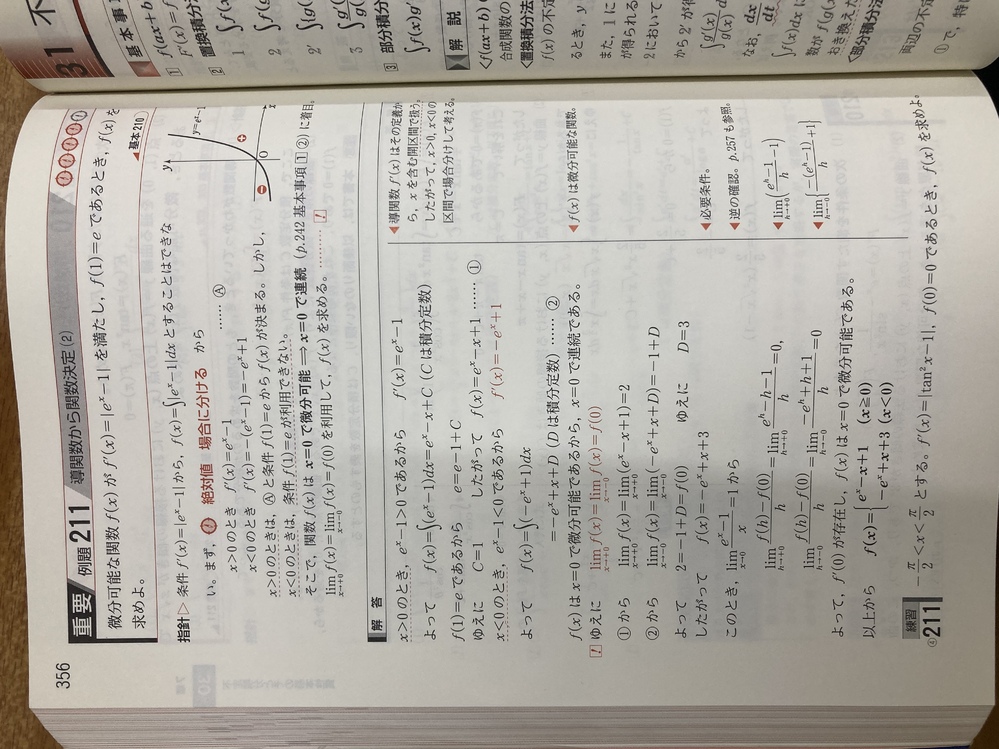 356
重要 例題 211 導関数から関数決定(2)
微分可能な関数 f(x) が f'(x)=|e^x-1| を満たし，f(1)=e であるとき，f(x) を
求めよ。
◀基本 210
指針▷ 条件 f'(x)=|e^x-1| から，f(x)=∫|e^x-1|dx とすることはできな
い。まず， 絶対値 場合に分ける から
x>0 のとき f'(x)=e^x-1
x<0 のとき f'(x)=-(e^x-1)=-e^x+1 …… Ⓐ
x>0 のときは，Ⓐ と条件 f(1)=e から f(x) が決まる。しかし，
x<0 のときは，条件 f(1)=e が利用できない。
そこで，関数 f(x) は x=0 で微分可能 ⟹ x=0 で連続 (p.242 基本事項 1 ②) に着目。
lim_{x→+0} f(x)=lim_{x→-0} f(x)=f(0) を利用して，f(x) を求める。………!
y
y=e^x-1
⊕
⊖
0
x
解答
x>0 のとき，e^x-1>0 であるから f'(x)=e^x-1
よって f(x)=∫(e^x-1)dx=e^x-x+C (C は積分定数)
f(1)=e であるから e=e-1+C
ゆえに C=1 したがって f(x)=e^x-x+1 …… ①
x<0 のとき，e^x-1<0 であるから f'(x)=-e^x+1
よって f(x)=∫(-e^x+1)dx
=-e^x+x+D (D は積分定数) …… ②
f(x) は x=0 で微分可能であるから，x=0 で連続である。
! ゆえに lim_{x→+0} f(x)=lim_{x→-0} f(x)=f(0)
① から lim_{x→+0} f(x)=lim_{x→+0}(e^x-x+1)=2
② から lim_{x→-0} f(x)=lim_{x→-0}(-e^x+x+D)=-1+D
よって 2=-1+D=f(0) ゆえに D=3
したがって f(x)=-e^x+x+3
このとき，lim_{x→0} (e^x-1)/x=1 から
lim_{h→+0} (f(h)-f(0))/h=lim_{h→+0} (e^h-h-1)/h=0，
lim_{h→-0} (f(h)-f(0))/h=lim_{h→-0} (-e^h+h+1)/h=0
よって，f'(0) が存在し，f(x) は x=0 で微分可能である。
以上から f(x)={ e^x-x+1 (x≧0)
-e^x+x+3 (x<0)
◀導関数 f'(x) はその定義か
ら，x を含む開区間で扱う。
したがって，x>0，x<0 の
区間で場合分けして考える。
◀f(x) は微分可能な関数。
◀必要条件。
◀逆の確認。p.257 も参照。
◀lim_{h→+0}((e^h-1)/h-1)
◀lim_{h→-0}{-(e^h-1)/h+1}
練習 ④211 -π/2<x<π/2 とする。f'(x)=|tan²x-1|，f(0)=0 であるとき，f(x) を求めよ。
31 不
基本事
1
2 置換積分
1
2
2'
3
3 部分積分
解説
合成関数の
〈置換積分法
f(x) の不定
るとき，y
また，1 に
が得られる
2 において
から 2' が
なお，dx/dt
おき換えた
〈部分積分法
両辺の不定
①で，特に